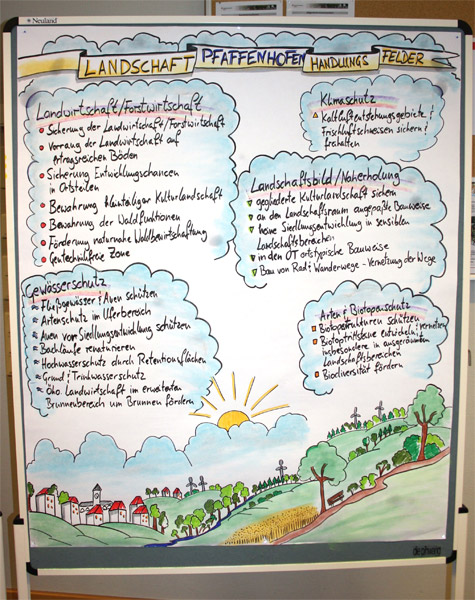 Neuland
LANDSCHAFT PFAFFENHOFEN HANDLUNGS FELDER
Landwirtschaft/Forstwirtschaft
Sicherung der Landwirtschaft/Forstwirtschaft
Vorrang der Landwirtschaft auf
Artragreichen Böden
Sicherung Entwicklungschancen
in Ortsteilen
Bewahrung kleinteiliger Kulturlandschaft
Bewahrung der Waldfunktionen
Förderung naturnahe Waldbewirtschaftung
Gentechnikfreie Zone
Klimaschutz
Kaltluftentstehungsgebiete &
Frischluftschneisen sichern &
erhalten
Landschaftsbild/Naherholung
gegliederte Kulturlandschaft sichern
an den Landschaftsraum angepaßte Bauweise
keine Siedlungsentwicklung in sensiblen
Landschaftsbereichen
in den OT ortstypische Bauweise
Bau von Rad & Wanderwege - Vernetzung der Wege
Gewässerschutz
Fließgewässer & Auen schützen
Artenschutz im Uferbereich
Auen vor Siedlungsentwicklung schützen
Bachläufe renaturieren
Hochwasserschutz durch Retentionsflächen
Grund & Trinkwasserschutz
Öko. Landwirtschaft im erweiterten
Brunnenbereich um Brunnen fördern
Arten & Biotopenschutz
Biotopstrukturen schützen
Biotoptrittsteine entwickeln & vernetzen
insbesondere in ausgeräumten
Landschaftsbereichen
Biodiversität fördern